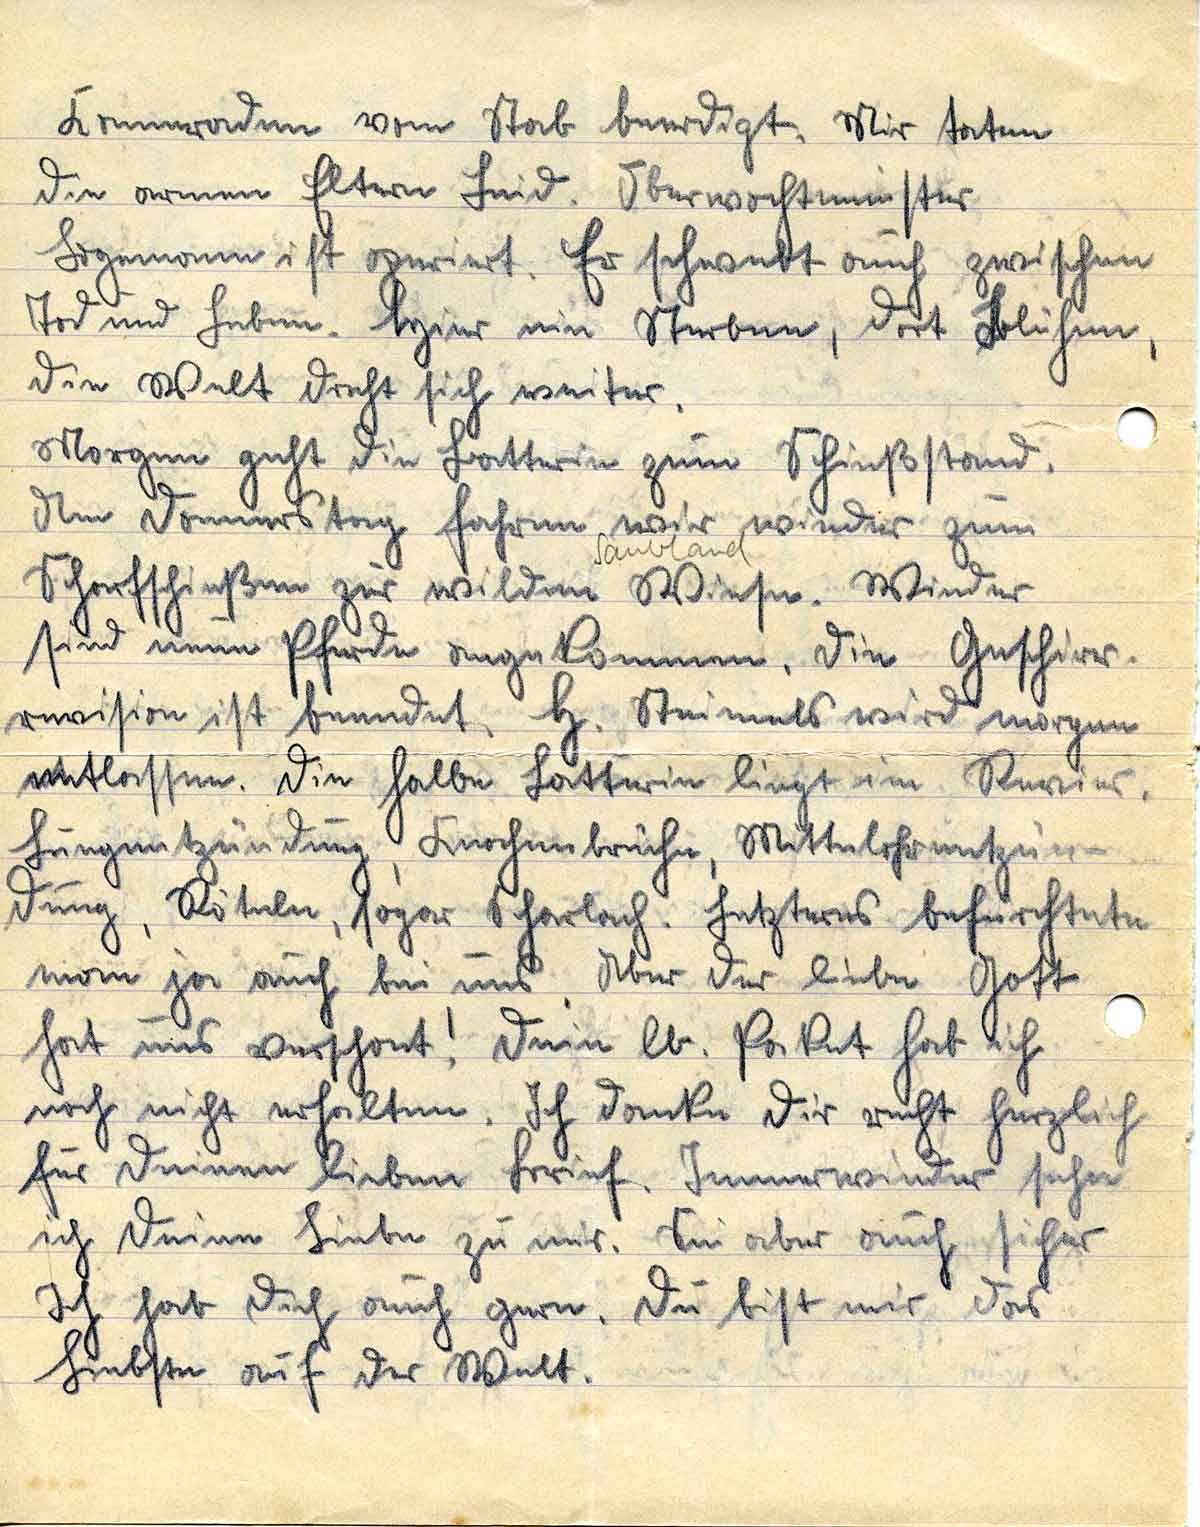 Kameraden vom Stab beerdigt. Mir taten
die armen Eltern Leid. Oberwachtmeister
ist operiert. Er schwebt auch zwischen
Tod und Leben. Hier ein Sterben, dort Blühen,
die Welt dreht sich weiter.
Morgen geht die Batterie zum Schießstand.
Am Donnerstag fahren wir wieder zum
Sandland
Scharfschießen zur wilden Wiese. Wieder
sind neue Pferde angekommen. Die Geschirr-
revision ist beendet. H. Steimels wird morgen
entlassen. Die halbe Batterie liegt im Revier.
Lungentzündung, Knochenbrüche, Mittelohrentzün-
dung, Röteln, sogar Scharlach. Letzteres befürchtete
man ja auch bei uns. Aber der liebe Gott
hat uns verschont! Dein lb. Paket hab ich
noch nicht erhalten. Ich danke Dir recht herzlich
für Deinen lieben Brief. Immerwieder sehe
ich Deine Liebe zu mir. Sei aber auch sicher
Ich hab Dich auch gern. Du bist mir das
Liebste auf der Welt.